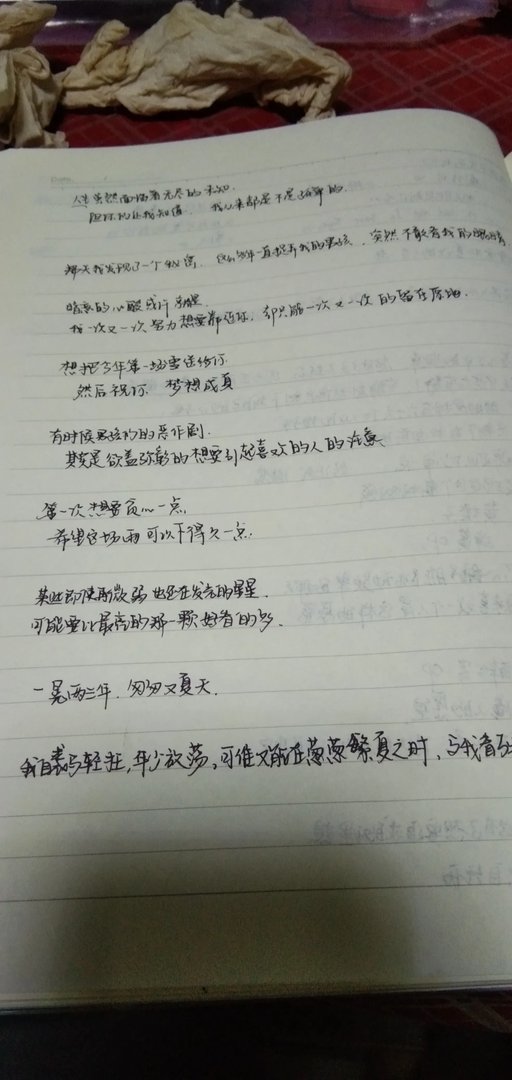 人生虽然面临着无尽的未知.
但你让我知道 我从来都是不是孤单的.
那天我发现了一个秘密, 一直捉弄我的男孩, 突然不敢看我的眼睛
暗恋的心酸或许就是
我一次又一次努力想要靠近你, 却只能一次又一次的留在原地.
想把今年第一场雪送给你
然后祝你 梦想成真
有时候男孩的恶作剧.
其实是欲盖弥彰的想要引起喜欢的人的注意
第一次想要贪心一点
希望这场雨可以下得久一点.
某些即使渐微弱也还在发光的星星
可能要比最亮的那一颗好看的多.
一晃两三年, 匆匆又夏天.
我自轻狂, 年少放荡, 可谁又能在葱葱繁夏之时, 与我